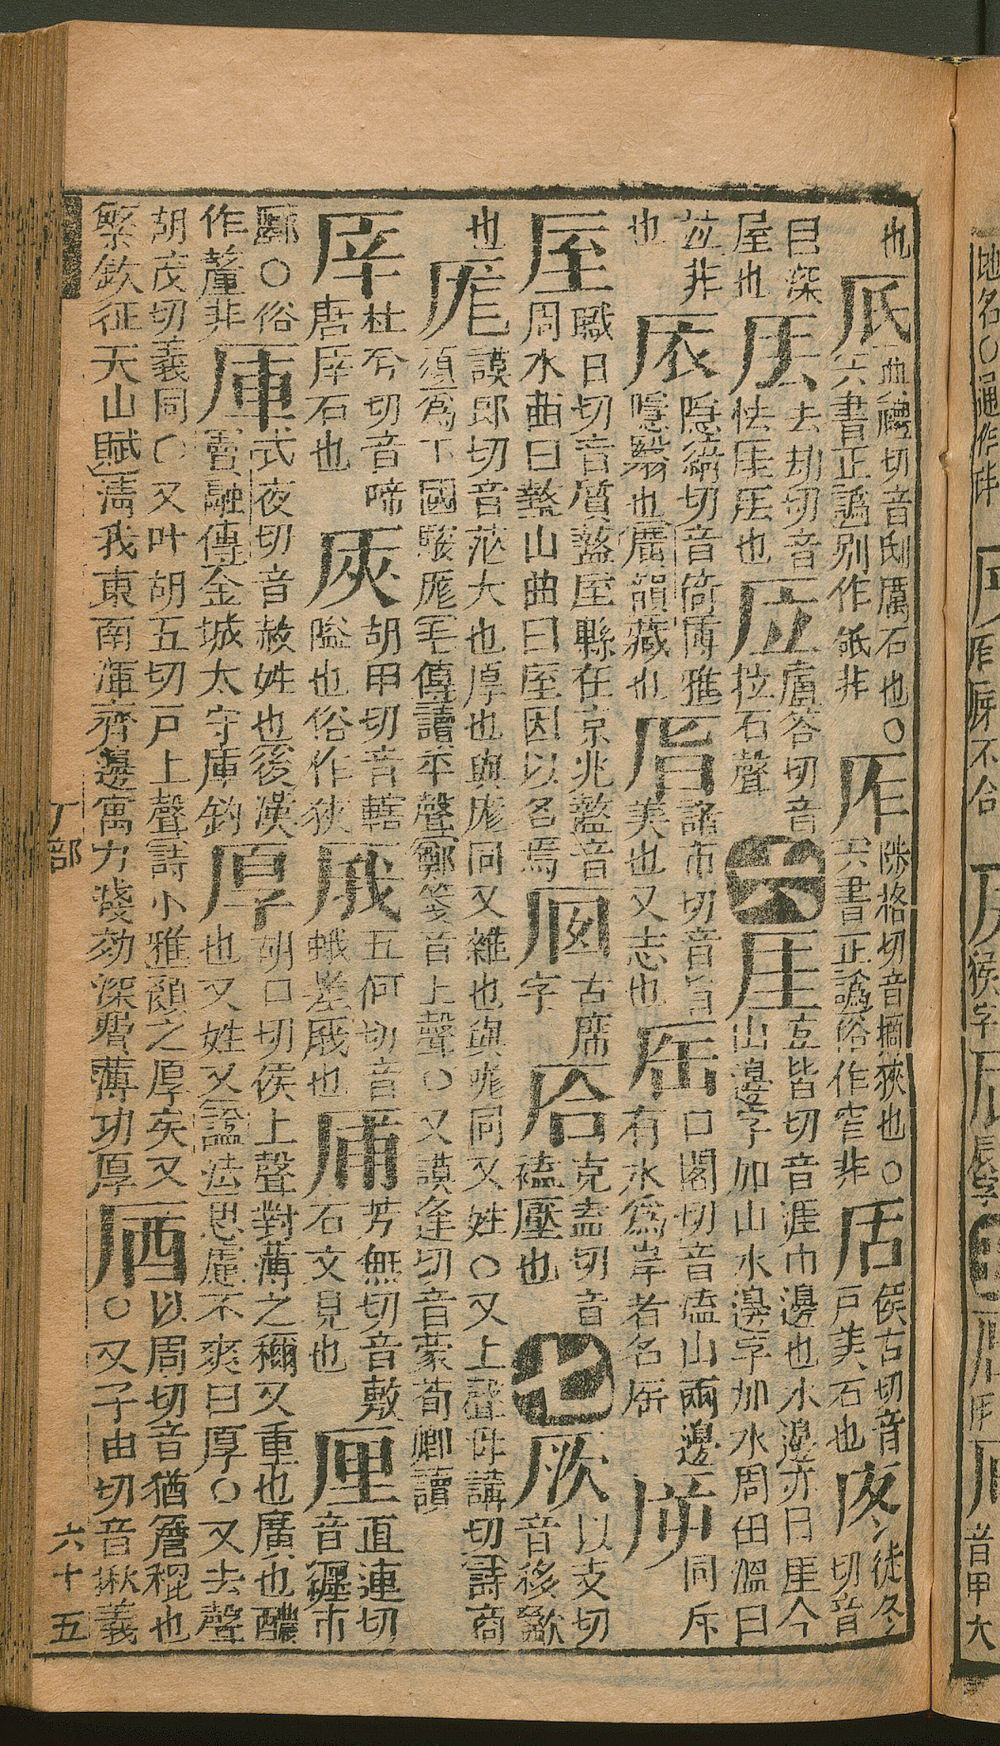 也厎典禮切音邸厲石也○六書正譌別作砥非厏陟格切音摘狹也○六書正譌俗作窄非㕆侯古切音戶美石也 徒冬切音
目深屋也厒去劫切音怯厒厒也㕇盧荅切音拉石聲六厓宜皆切音涯巾邊也水邊亦曰厓今山邊字加山水邊字加水周田溫曰
竝非也㕈隱豨切音倚博雅隱翳也廣韻藏也 諸市切音旨美也又志也 口閤切音溘山兩邊有水爲岸者名 同斥
厔職日切音質盩厔縣在京兆盩音周水曲曰盩山曲曰厔因以名焉 古席字㕉克盍切音磕壓也七 以支切音移歈
也厖謨郎切音茫大也厚也與庬同又雜也與哤同又姓○又上聲母講切詩商頌爲下國駿厖毛傳讀平聲鄭箋音上聲○又謨逢切音蒙荀卿讀
厗杜兮切音啼唐厗石也 胡甲切音轄隘也俗作狹 五何切音蛾 也 芳無切音敷石文見也厘直連切音纏市
鄽○俗作釐非厙式夜切音赦姓也後漢竇融傳金城太守厙鈞厚胡口切侯上聲對薄之稱又重也廣也醲也又姓又諡法思慮不爽曰厚○又去聲
胡茂切義同○又叶胡五切戶上聲詩小雅顏之厚矣又繁欽征天山賦淸我東南渾齊邊寓力淺効深費薄功厚 以周切音猶簷棍也○又子由切音揪義
厂部
六十五